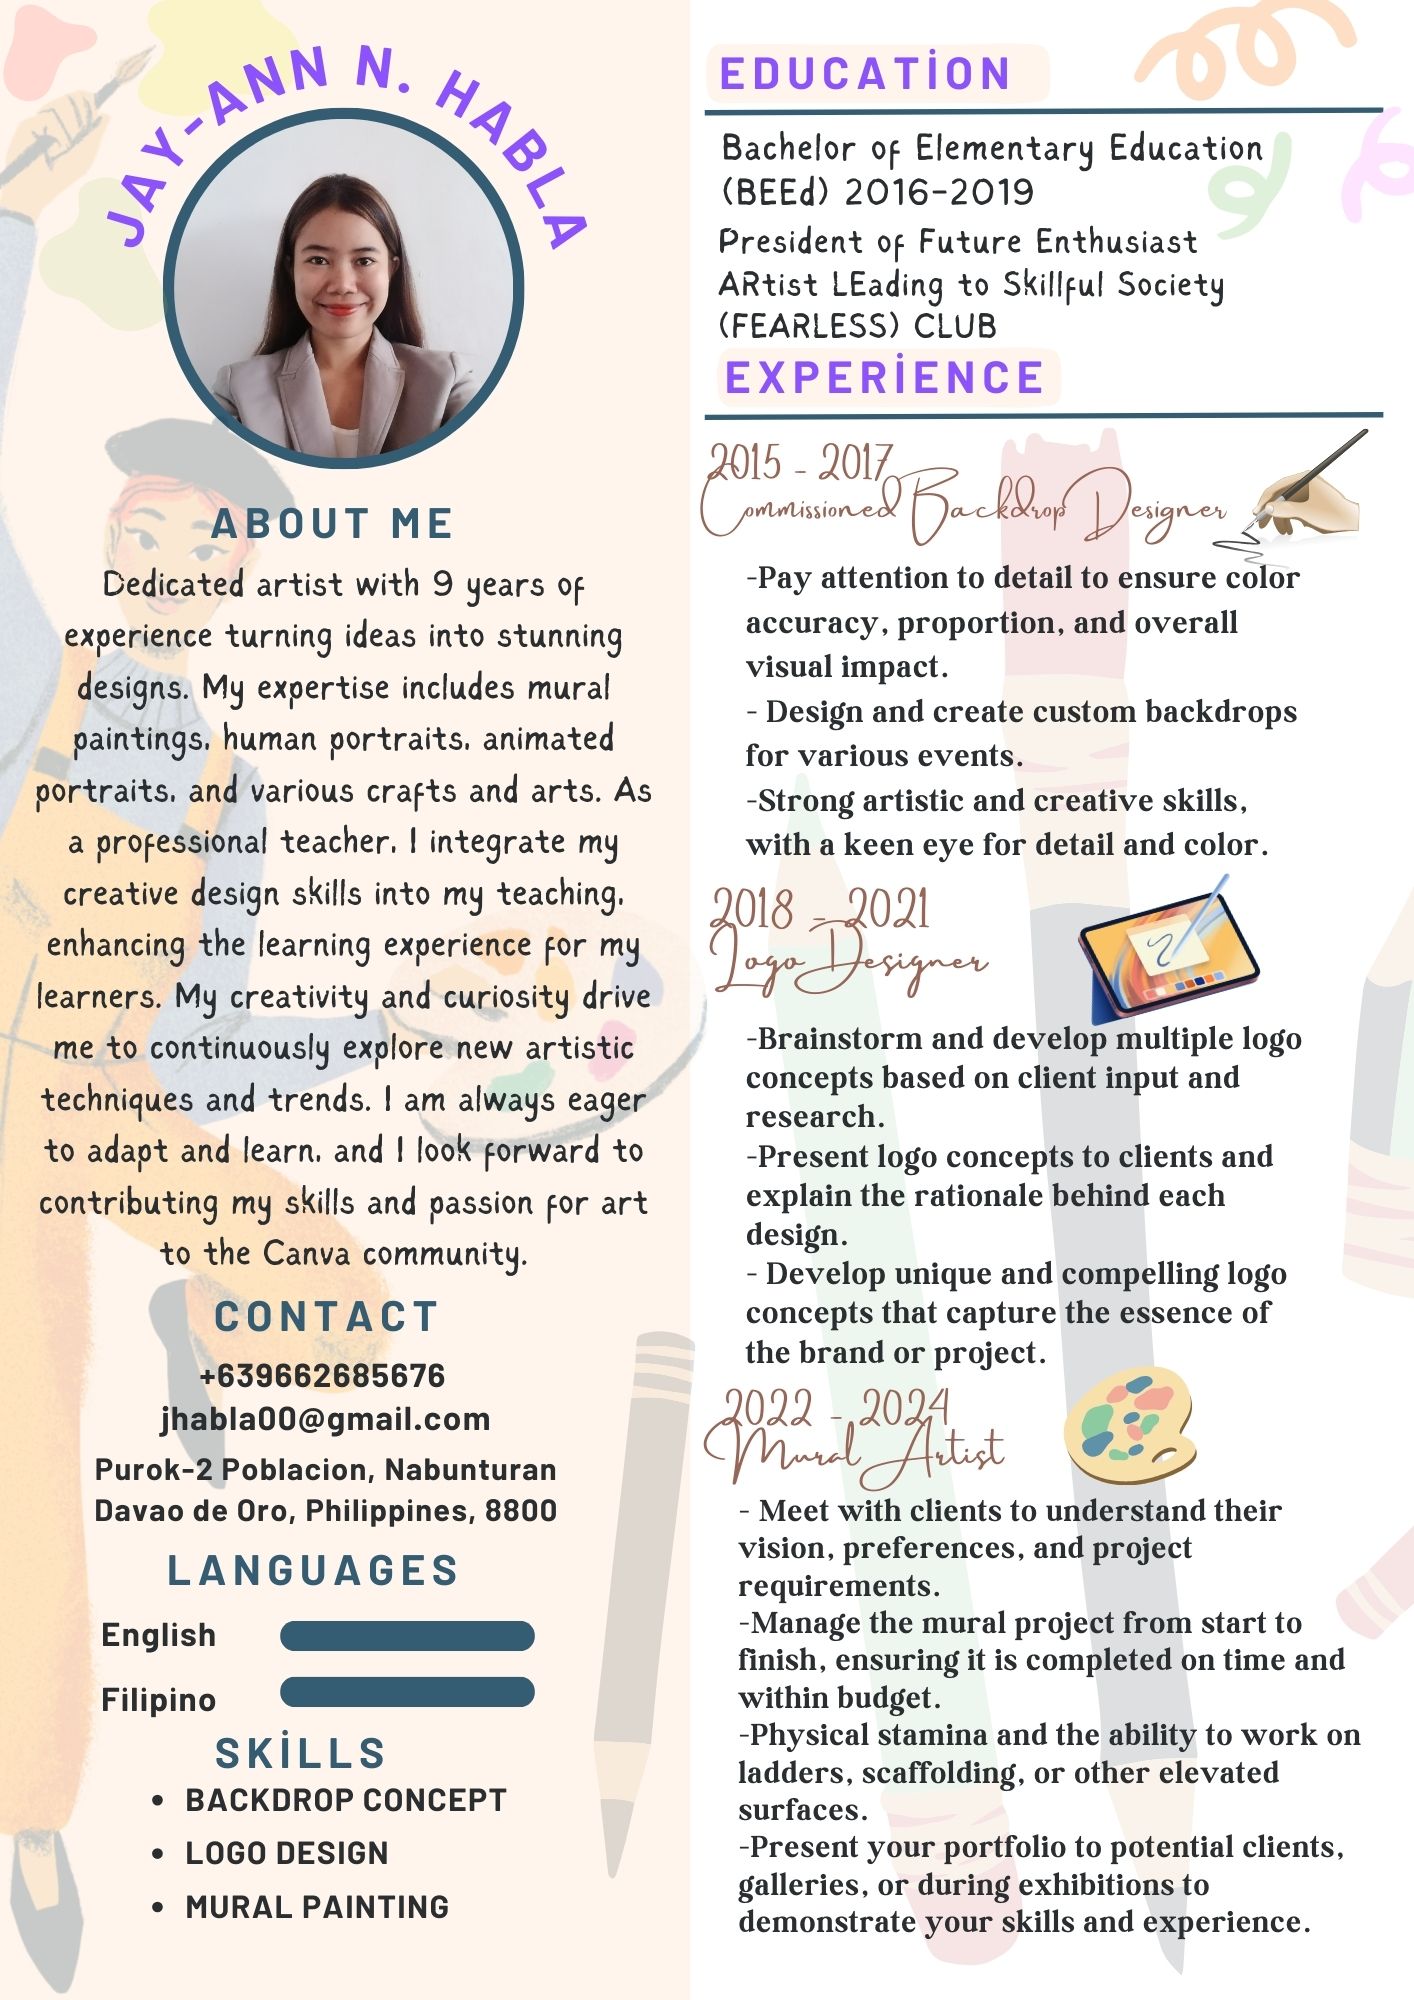 JAY-ANN N. HABLA
ABOUT ME
Dedicated artist with 9 years of
experience turning ideas into stunning
designs. My expertise includes mural
paintings, human portraits, animated
portraits, and various crafts and arts. As
a professional teacher, I integrate my
creative design skills into my teaching,
enhancing the learning experience for my
learners. My creativity and curiosity drive
me to continuously explore new artistic
techniques and trends. I am always eager
to adapt and learn, and I look forward to
contributing my skills and passion for art
to the Canva community.
CONTACT
+639662685676
jhabla00@gmail.com
Purok-2 Poblacion, Nabunturan
Davao de Oro, Philippines, 8800
LANGUAGES
English
Filipino
SKİLLS
• BACKDROP CONCEPT
• LOGO DESIGN
• MURAL PAINTING
EDUCATİON
Bachelor of Elementary Education
(BEEd) 2016-2019
President of Future Enthusiast
ARtist LEading to Skillful Society
(FEARLESS) CLUB
EXPERİENCE
2015 - 2017
Commissioned Backdrop Designer
-Pay attention to detail to ensure color
accuracy, proportion, and overall
visual impact.
- Design and create custom backdrops
for various events.
-Strong artistic and creative skills,
with a keen eye for detail and color.
2018 - 2021
Logo Designer
-Brainstorm and develop multiple logo
concepts based on client input and
research.
-Present logo concepts to clients and
explain the rationale behind each
design.
- Develop unique and compelling logo
concepts that capture the essence of
the brand or project.
2022 - 2024
Mural Artist
- Meet with clients to understand their
vision, preferences, and project
requirements.
-Manage the mural project from start to
finish, ensuring it is completed on time and
within budget.
-Physical stamina and the ability to work on
ladders, scaffolding, or other elevated
surfaces.
-Present your portfolio to potential clients,
galleries, or during exhibitions to
demonstrate your skills and experience.